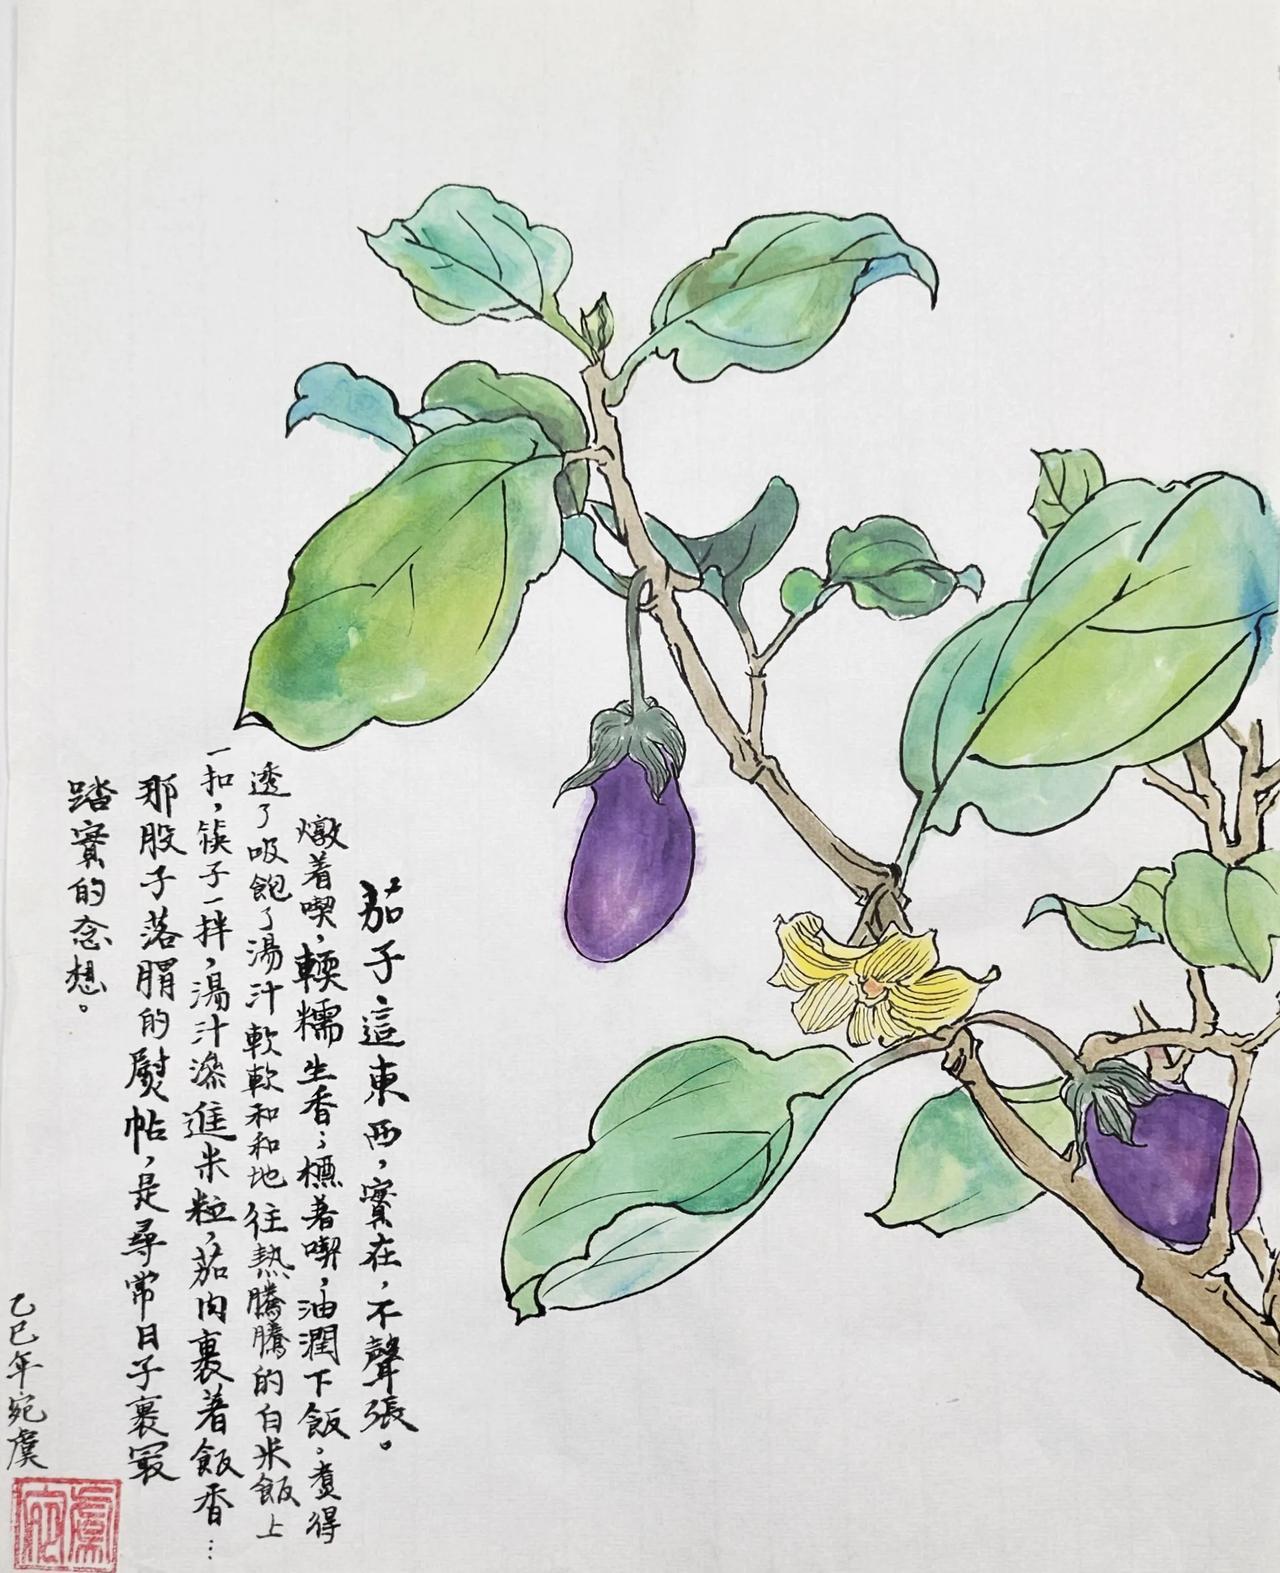 茄子這東西，實在，不聲張。
燉着喫，輭糯生香；燻著喫，油潤下飯。煮得
透了吸飽了湯汁軟軟和和地往熱騰騰的白米飯上
一扣，筷子一拌，湯汁滲進米粒，茄肉裹着飯香…
那股子落胃的熨帖，是尋常日子裹最
踏實的念想。
乙巳年宛虞